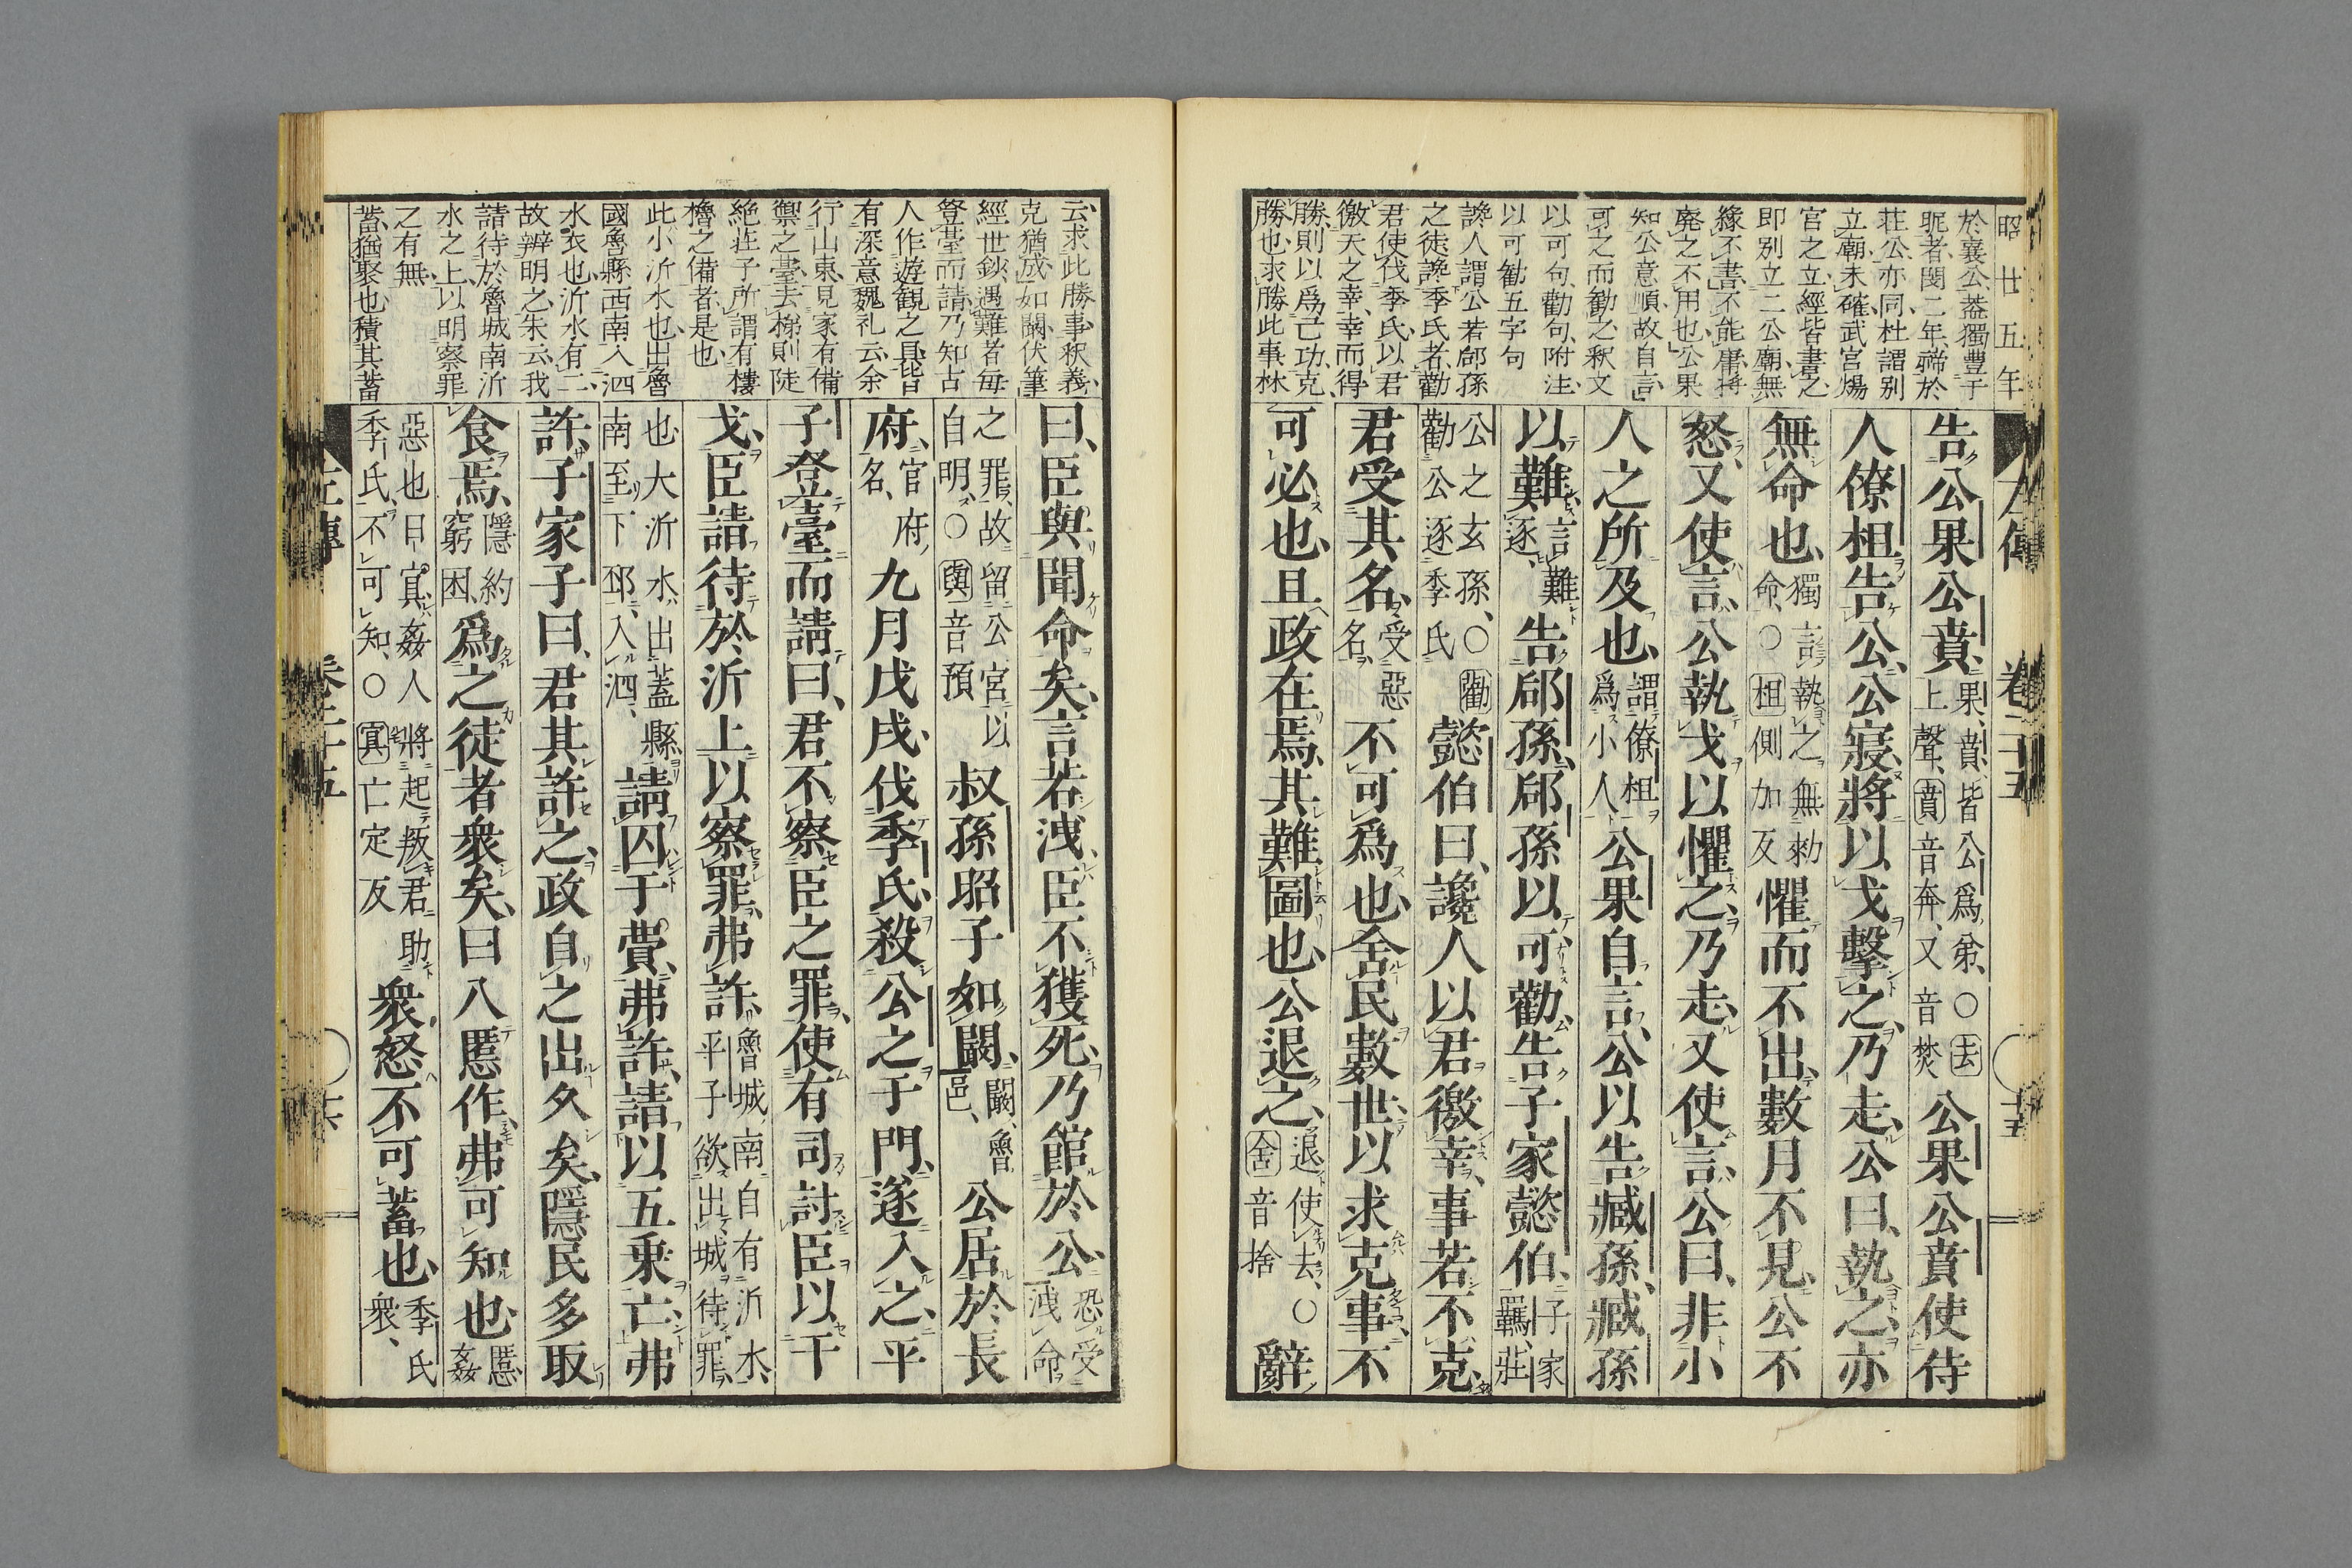 昭廿五年
左傳 卷二十五 十五
於襄公蓋獨豊于
昵者閔二年禘於
荘公亦同杜謂別
立廟未確武宮煬
宮之立經皆書之
即別立二公廟無
緣不書不能庸將
廃之不用也公果
知公意順故自言
可之而勸之釈文
以可句勸句附注
以可勧五字句
讒人謂公若郈孫
之徒讒季氏者勸
君使伐季氏以君
徼天之幸幸而得
勝則以爲己功克
勝也求勝此事林
告公果公賁果賁皆公爲弟〇去
上聲賁音奔又音焚公果公賁使侍
人僚柤告公公寢將以戈擊之乃走公曰執之亦
無命也獨言執之無勑
命〇柤側加反懼而不出數月不見公不
怒又使言公執戈以懼之乃走又使言公曰非小
人之所及也謂僚柤
爲小人公果自言公以告臧孫臧孫
以難言難
逐告郈孫郈孫以可勸告子家懿伯子家
羈莊
公之玄孫〇勸
勸公逐季氏懿伯曰讒人以君徼幸事若不克
君受其名受惡
名不可爲也舍民數世以求克事不
可必也且政在焉其難圖也公退之退使去〇
舍音捨辭
云求此勝事釈義
克猶成如闞伏筆
經世鈔遇難者毎
登臺而請乃知古
人作遊観之具皆
有深意魏礼云余
行山東見家有備
禦之臺去梯則陡
絶荘子所謂有樓
櫓之備者是也
此小沂水也出魯
國魯縣西南入泗
水衣也沂水有二
故辨明之朱云我
請待於魯城南沂
水之上以明察罪
之有無
蓄猶聚也積其蓄
曰臣與聞命矣言若洩臣不獲死乃館於公恐受
洩命
之罪故留公宮以
自明〇與音預叔孫昭子如闞闞魯
邑公居於長
府官府
名九月戊戌伐季氏殺公之于門遂入之平
子登臺而請曰君不察臣之罪使有司討臣以干
戈臣請待於沂上以察罪弗許魯城南自有沂水
平子欲出城待罪
也大沂水出蓋縣
南至下邳入泗請囚于費弗許請以五乗亡弗
許子家子曰君其許之政自之出久矣隱民多取
食焉隱約
窮困爲之徒者衆矣曰入慝作弗可知也慝
姦
惡也日冥姦人將起叛君助
季氏不可知〇冥亡定反衆怒不可蓄也季氏
衆
左傳 卷二十五